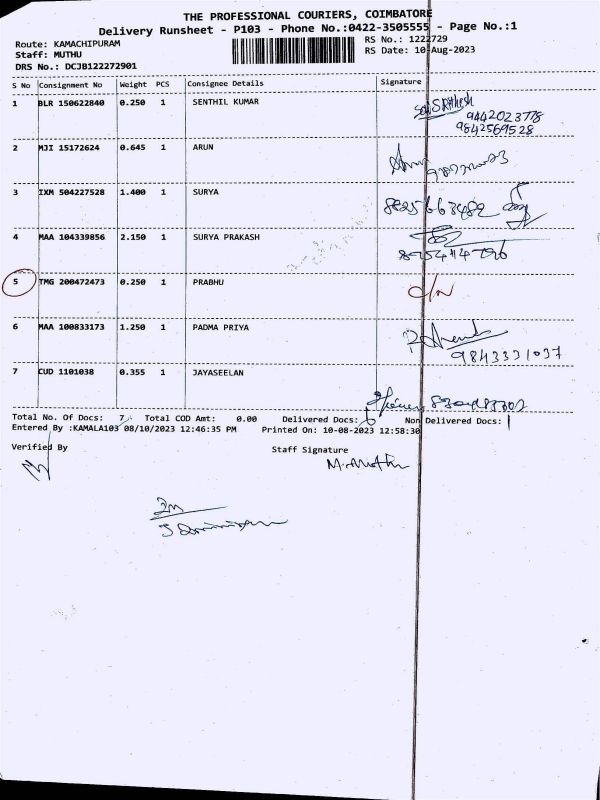 THE PROFESSIONAL COURIERS, COIMBATORE
Delivery Runsheet - P103 - Phone No.:0422-3505555 - Page No.:1
Route: KAMACHIPURAM
RS No.: 1222729
Staff: MUTHU
RS Date: 10-Aug-2023
DRS No.: DCJB122272901
S No Consignment No Weight PCS Consignee Details Signature
1 BLR 150622840 0.250 1 SENTHIL KUMAR
9442023778
9842569528
2 MJI 15172624 0.645 1 ARUN
3 IXM 504227528 1.400 1 SURYA
8825663482
4 MAA 104339856 2.150 1 SURYA PRAKASH
5 TMG 200472473 0.250 1 PRABHU
6 MAA 100833173 1.250 1 PADMA PRIYA
9843331037
7 CUD 1101038 0.355 1 JAYASEELAN
Total No. Of Docs: 7 Total COD Amt: 0.00 Delivered Docs: 6 Non Delivered Docs: 1
Entered By :KAMALA103 08/10/2023 12:46:35 PM Printed On: 10-08-2023 12:58:30
Verified By
Staff Signature
M. Muthu